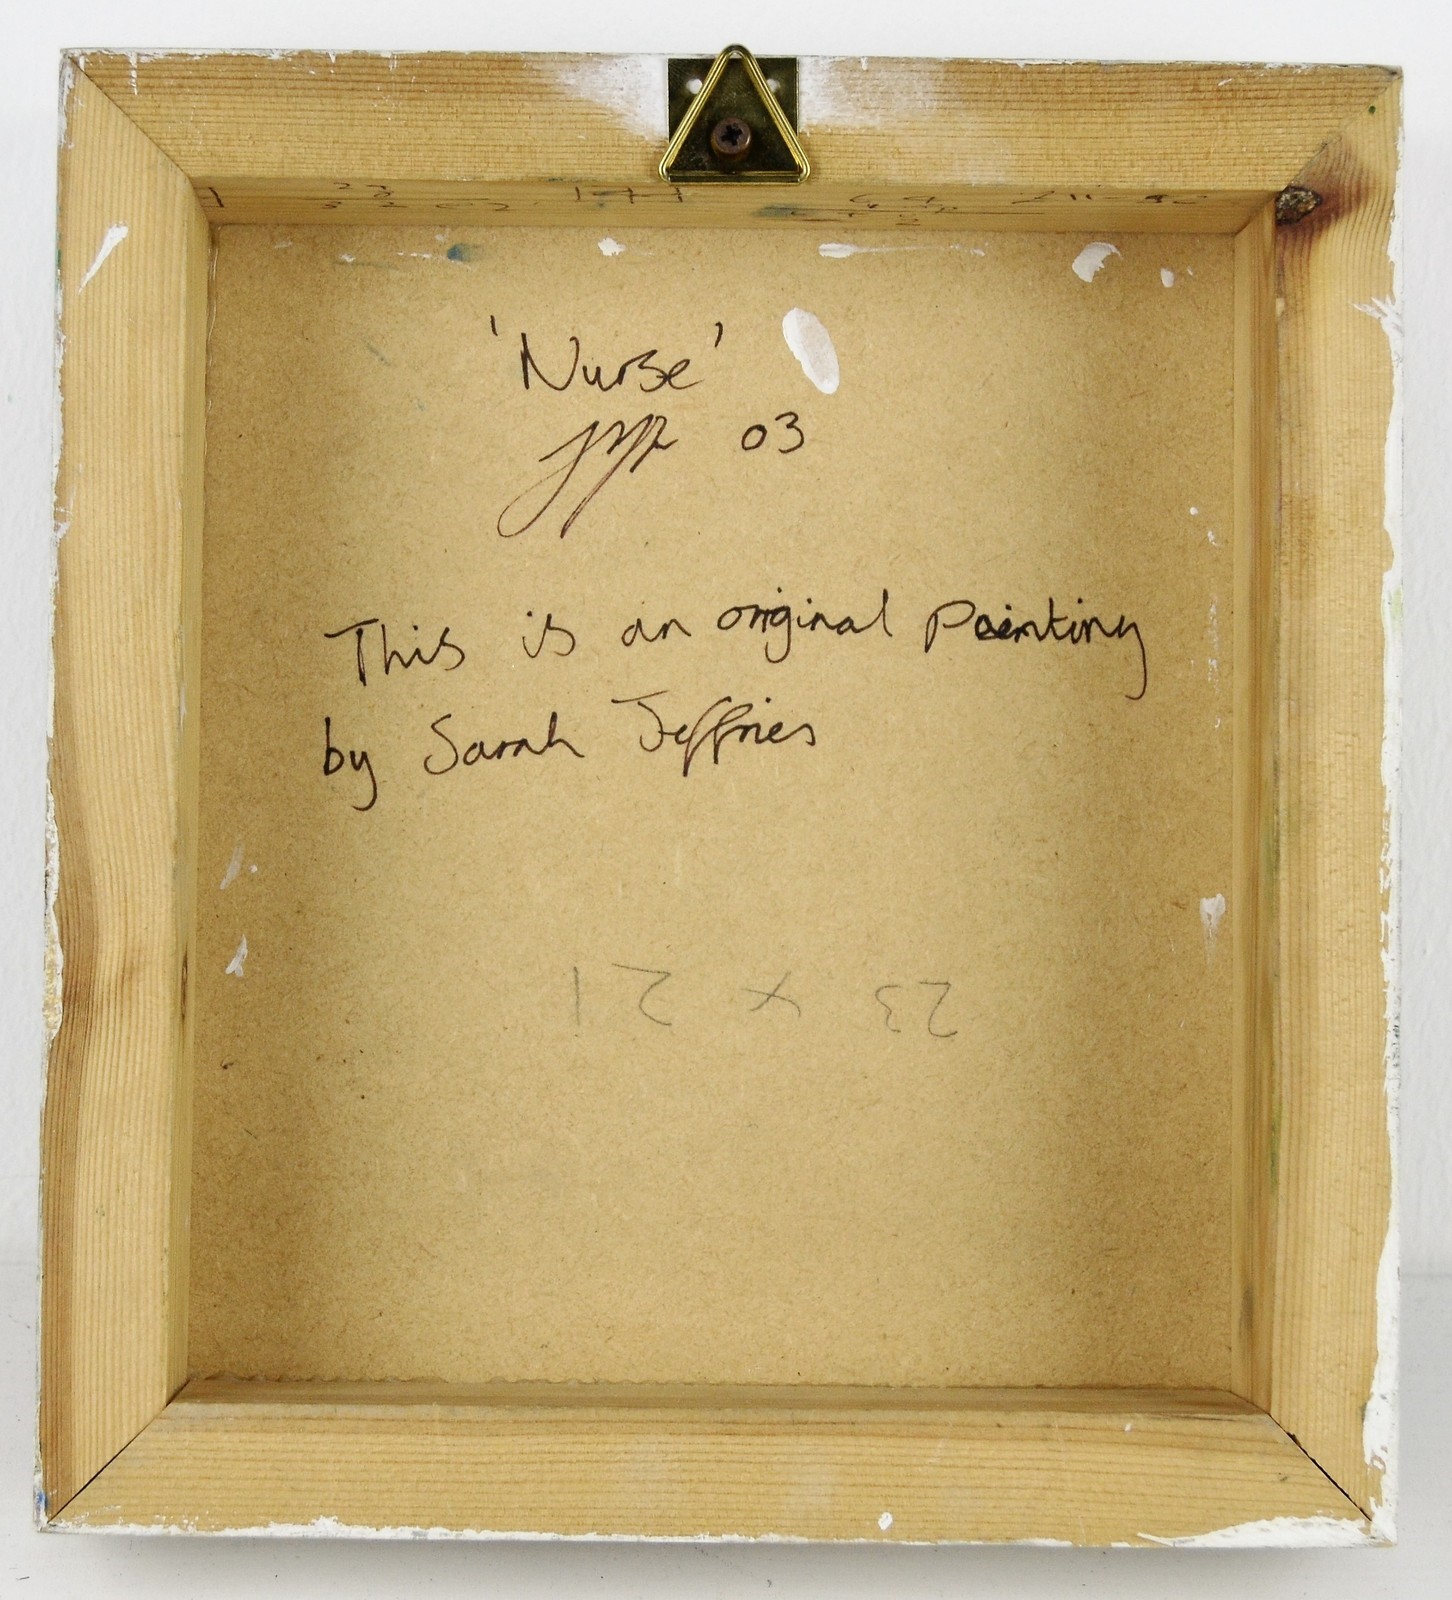 'Nurse'
03
This is an original Painting
by Sarah Jeffries
23 x 21